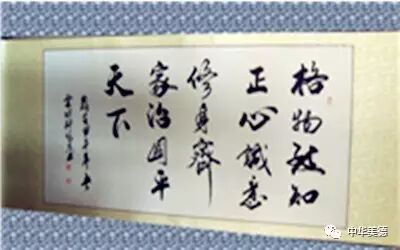 格物致知
正心诚意
修身齐
家治国平
天下
中华美德